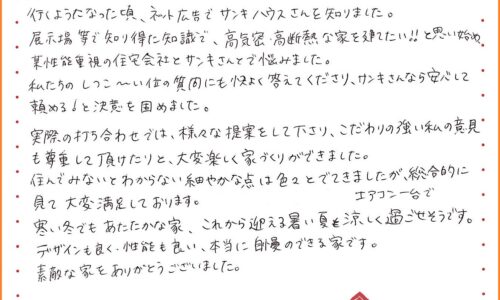 行くようになった頃、ネット広告でサンキハウスさんを知りました。
展示場等で知り得た知識で、高気密・高断熱な家を建てたい!!と思い始め
某性能重視の住宅会社とサンキさんとで悩みました。
私たちのしつこ〜い位の質問にも快よく答えてくださり、サンキさんなら安心して
頼める!と決意を固めました。
実際の打ち合わせでは、様々な提案をして下さり、こだわりの強い私の意見
も尊重して頂けたりと、大変楽しく家づくりができました。
住んでみないとわからない細やかな点は色々とでてきましたが、総合的に
見て大変満足しております。
エアコン一台で
寒い冬でもあたたかな家、これから迎える暑い夏も涼しく過ごせそうです。
デザインも良く・性能も良い、本当に自慢のできる家です。
素敵な家をありがとうございました。